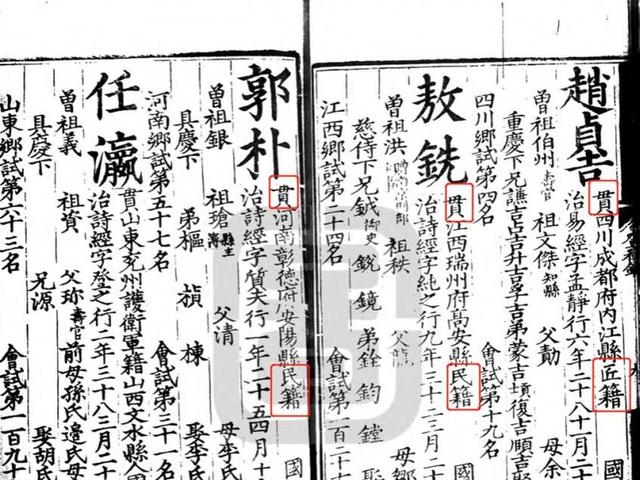 趙貞吉
貫四川成都府內江縣匠籍
治易經字孟靜行六年二十八十一月二十
曾祖伯州 壽官 祖文傑 知縣 父勣 母余
重慶下 兄 弟蒙吉 復吉 順吉
四川鄉試第四名 會試第十九名
敖銑
貫江西瑞州府高安縣民籍
治詩經字純之行九年三十三月二十
曾祖洪 祖秩 父
慈侍下 兄鉞 御史 鏡 弟銓 鈞 鏜
江西鄉試第二十四名 會試第一百二十
郭朴
貫河南彰德府安陽縣民籍
治詩經字質夫行一年二十五四月十
曾祖銀 祖瑲 縣主簿 父清 母李氏
具慶下 弟樞 楨 棟 娶李氏
河南鄉試第五十七名 會試第三十一名
任瀛
貫山東兗州護衛軍籍山西文水縣人
治詩經字登之行二年三十八三月二十
曾祖義 祖資 父珎 壽官 前母孫氏 邉氏 母
具慶下 兄源 娶胡氏
山東鄉試第六十三名 會試第一百九十
國
國